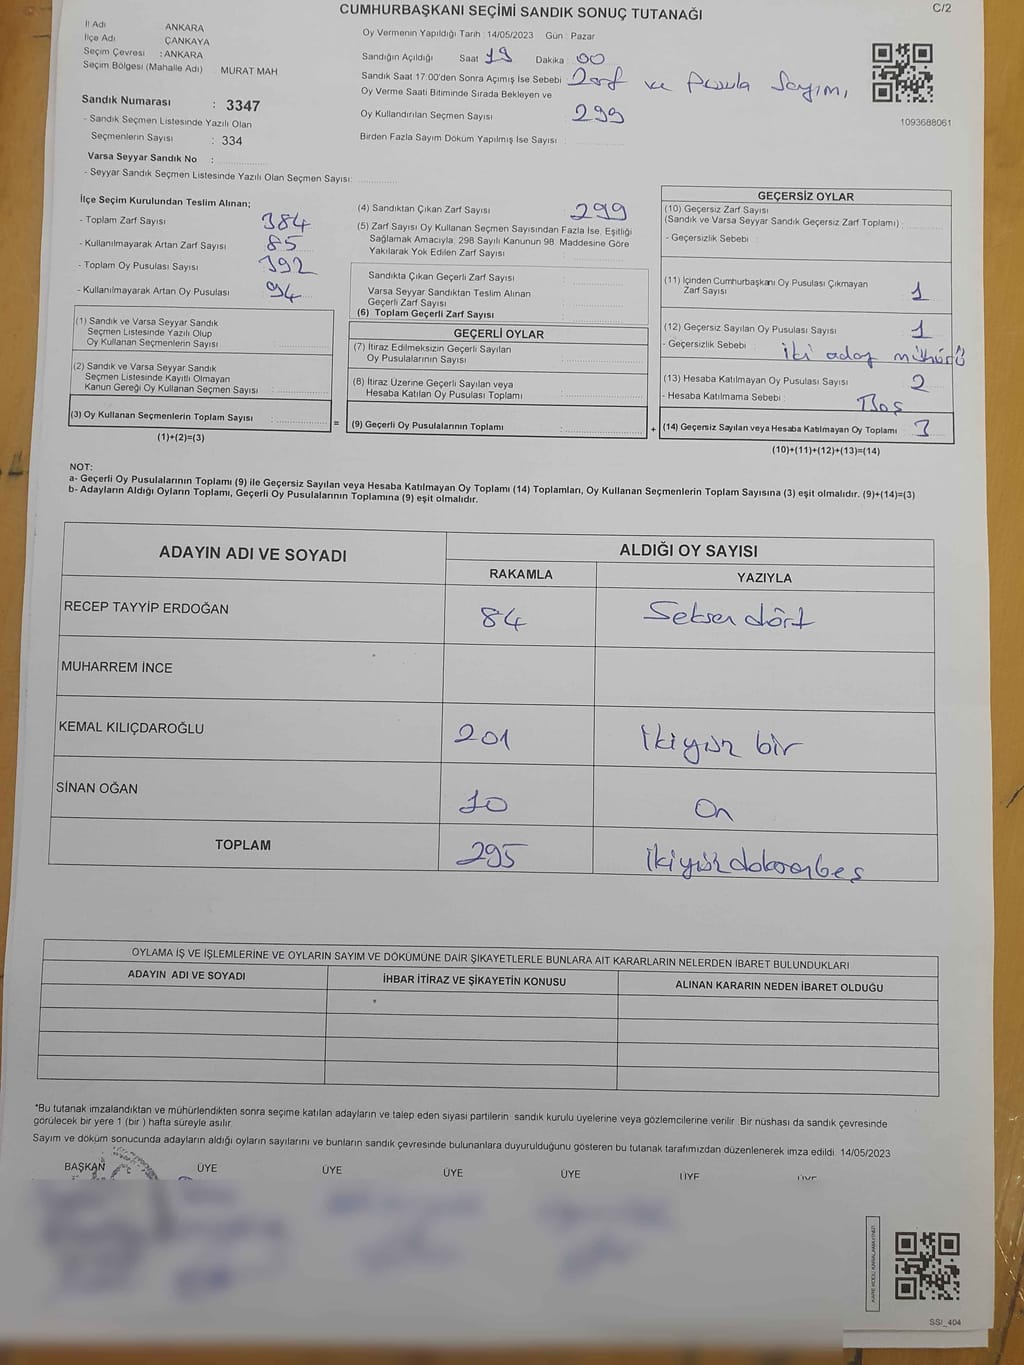 CUMHURBAŞKANI SEÇİMİ SANDIK SONUÇ TUTANAĞI
C/2
İl Adı ANKARA
İlçe Adı ÇANKAYA
Seçim Çevresi : ANKARA
Seçim Bölgesi (Mahalle Adı) MURAT MAH
Sandık Numarası : 3347
- Sandık Seçmen Listesinde Yazılı Olan
Seçmenlerin Sayısı : 334
Varsa Seyyar Sandık No :
- Seyyar Sandık Seçmen Listesinde Yazılı Olan Seçmen Sayısı:
Oy Vermenin Yapıldığı Tarih : 14/05/2023 Gün : Pazar
Sandığın Açıldığı Saat 19 Dakika 00
Sandık Saat 17.00'den Sonra Açımış İse Sebebi Zarf ve Pusula Sayımı
Oy Verme Saati Bitiminde Sırada Bekleyen ve
Oy Kullandırılan Seçmen Sayısı 299
Birden Fazla Sayım Döküm Yapılmış İse Sayısı :
1093688061
İlçe Seçim Kurulundan Teslim Alınan;
- Toplam Zarf Sayısı 384
- Kullanılmayarak Artan Zarf Sayısı 85
- Toplam Oy Pusulası Sayısı 392
- Kullanılmayarak Artan Oy Pusulası 94
(1) Sandık ve Varsa Seyyar Sandık
Seçmen Listesinde Yazılı Olup
Oy Kullanan Seçmenlerin Sayısı :
(2) Sandık ve Varsa Seyyar Sandık
Seçmen Listesinde Kayıtlı Olmayan
Kanun Gereği Oy Kullanan Seçmen Sayısı :
(3) Oy Kullanan Seçmenlerin Toplam Sayısı : =
(1)+(2)=(3)
(4) Sandıktan Çıkan Zarf Sayısı 299
(5) Zarf Sayısı Oy Kullanan Seçmen Sayısından Fazla İse, Eşitliği
Sağlamak Amacıyla; 298 Sayılı Kanunun 98. Maddesine Göre
Yakılarak Yok Edilen Zarf Sayısı :
Sandıkta Çıkan Geçerli Zarf Sayısı :
Varsa Seyyar Sandıktan Teslim Alınan
Geçerli Zarf Sayısı :
(6) Toplam Geçerli Zarf Sayısı :
GEÇERLİ OYLAR
(7) İtiraz Edilmeksizin Geçerli Sayılan
Oy Pusulalarının Sayısı :
(8) İtiraz Üzerine Geçerli Sayılan veya
Hesaba Katılan Oy Pusulası Toplamı :
(9) Geçerli Oy Pusulalarının Toplamı : +
GEÇERSİZ OYLAR
(10) Geçersiz Zarf Sayısı
(Sandık ve Varsa Seyyar Sandık Geçersiz Zarf Toplamı) :
- Geçersizlik Sebebi :
(11) İçinden Cumhurbaşkanı Oy Pusulası Çıkmayan
Zarf Sayısı 1
(12) Geçersiz Sayılan Oy Pusulası Sayısı 1
- Geçersizlik Sebebi : İki aday mühürü
(13) Hesaba Katılmayan Oy Pusulası Sayısı 2
- Hesaba Katılmama Sebebi : Boş
(14) Geçersiz Sayılan veya Hesaba Katılmayan Oy Toplamı 3
(10)+(11)+(12)+(13)=(14)
NOT:
a- Geçerli Oy Pusulalarının Toplamı (9) ile Geçersiz Sayılan veya Hesaba Katılmayan Oy Toplamı (14) Toplamları, Oy Kullanan Seçmenlerin Toplam Sayısına (3) eşit olmalıdır. (9)+(14)=(3)
b- Adayların Aldığı Oyların Toplamı, Geçerli Oy Pusulalarının Toplamına (9) eşit olmalıdır.
ADAYIN ADI VE SOYADI
ALDIĞI OY SAYISI
RAKAMLA YAZIYLA
RECEP TAYYİP ERDOĞAN 84 Seksen dört
MUHARREM İNCE
KEMAL KILIÇDAROĞLU 201 İkiyüz bir
SİNAN OĞAN 10 On
TOPLAM 295 İkiyüzdoksanbeş
OYLAMA İŞ VE İŞLEMLERİNE VE OYLARIN SAYIM VE DÖKÜMÜNE DAİR ŞİKAYETLERLE BUNLARA AİT KARARLARIN NELERDEN İBARET BULUNDUKLARI
ADAYIN ADI VE SOYADI İHBAR İTİRAZ VE ŞİKAYETİN KONUSU ALINAN KARARIN NEDEN İBARET OLDUĞU
*Bu tutanak imzalandıktan ve mühürlendikten sonra seçime katılan adayların ve talep eden siyasi partilerin sandık kurulu üyelerine veya gözlemcilerine verilir. Bir nüshası da sandık çevresinde
görülecek bir yere 1 (bir ) hafta süreyle asılır.
Sayım ve döküm sonucunda adayların aldığı oyların sayılarını ve bunların sandık çevresinde bulunanlara duyurulduğunu gösteren bu tutanak tarafımızdan düzenlenerek imza edildi. 14/05/2023
BAŞKAN ÜYE ÜYE ÜYE ÜYE ÜYE ÜYE
KARE KODU KARALAMAYINIZ!
SSI_404